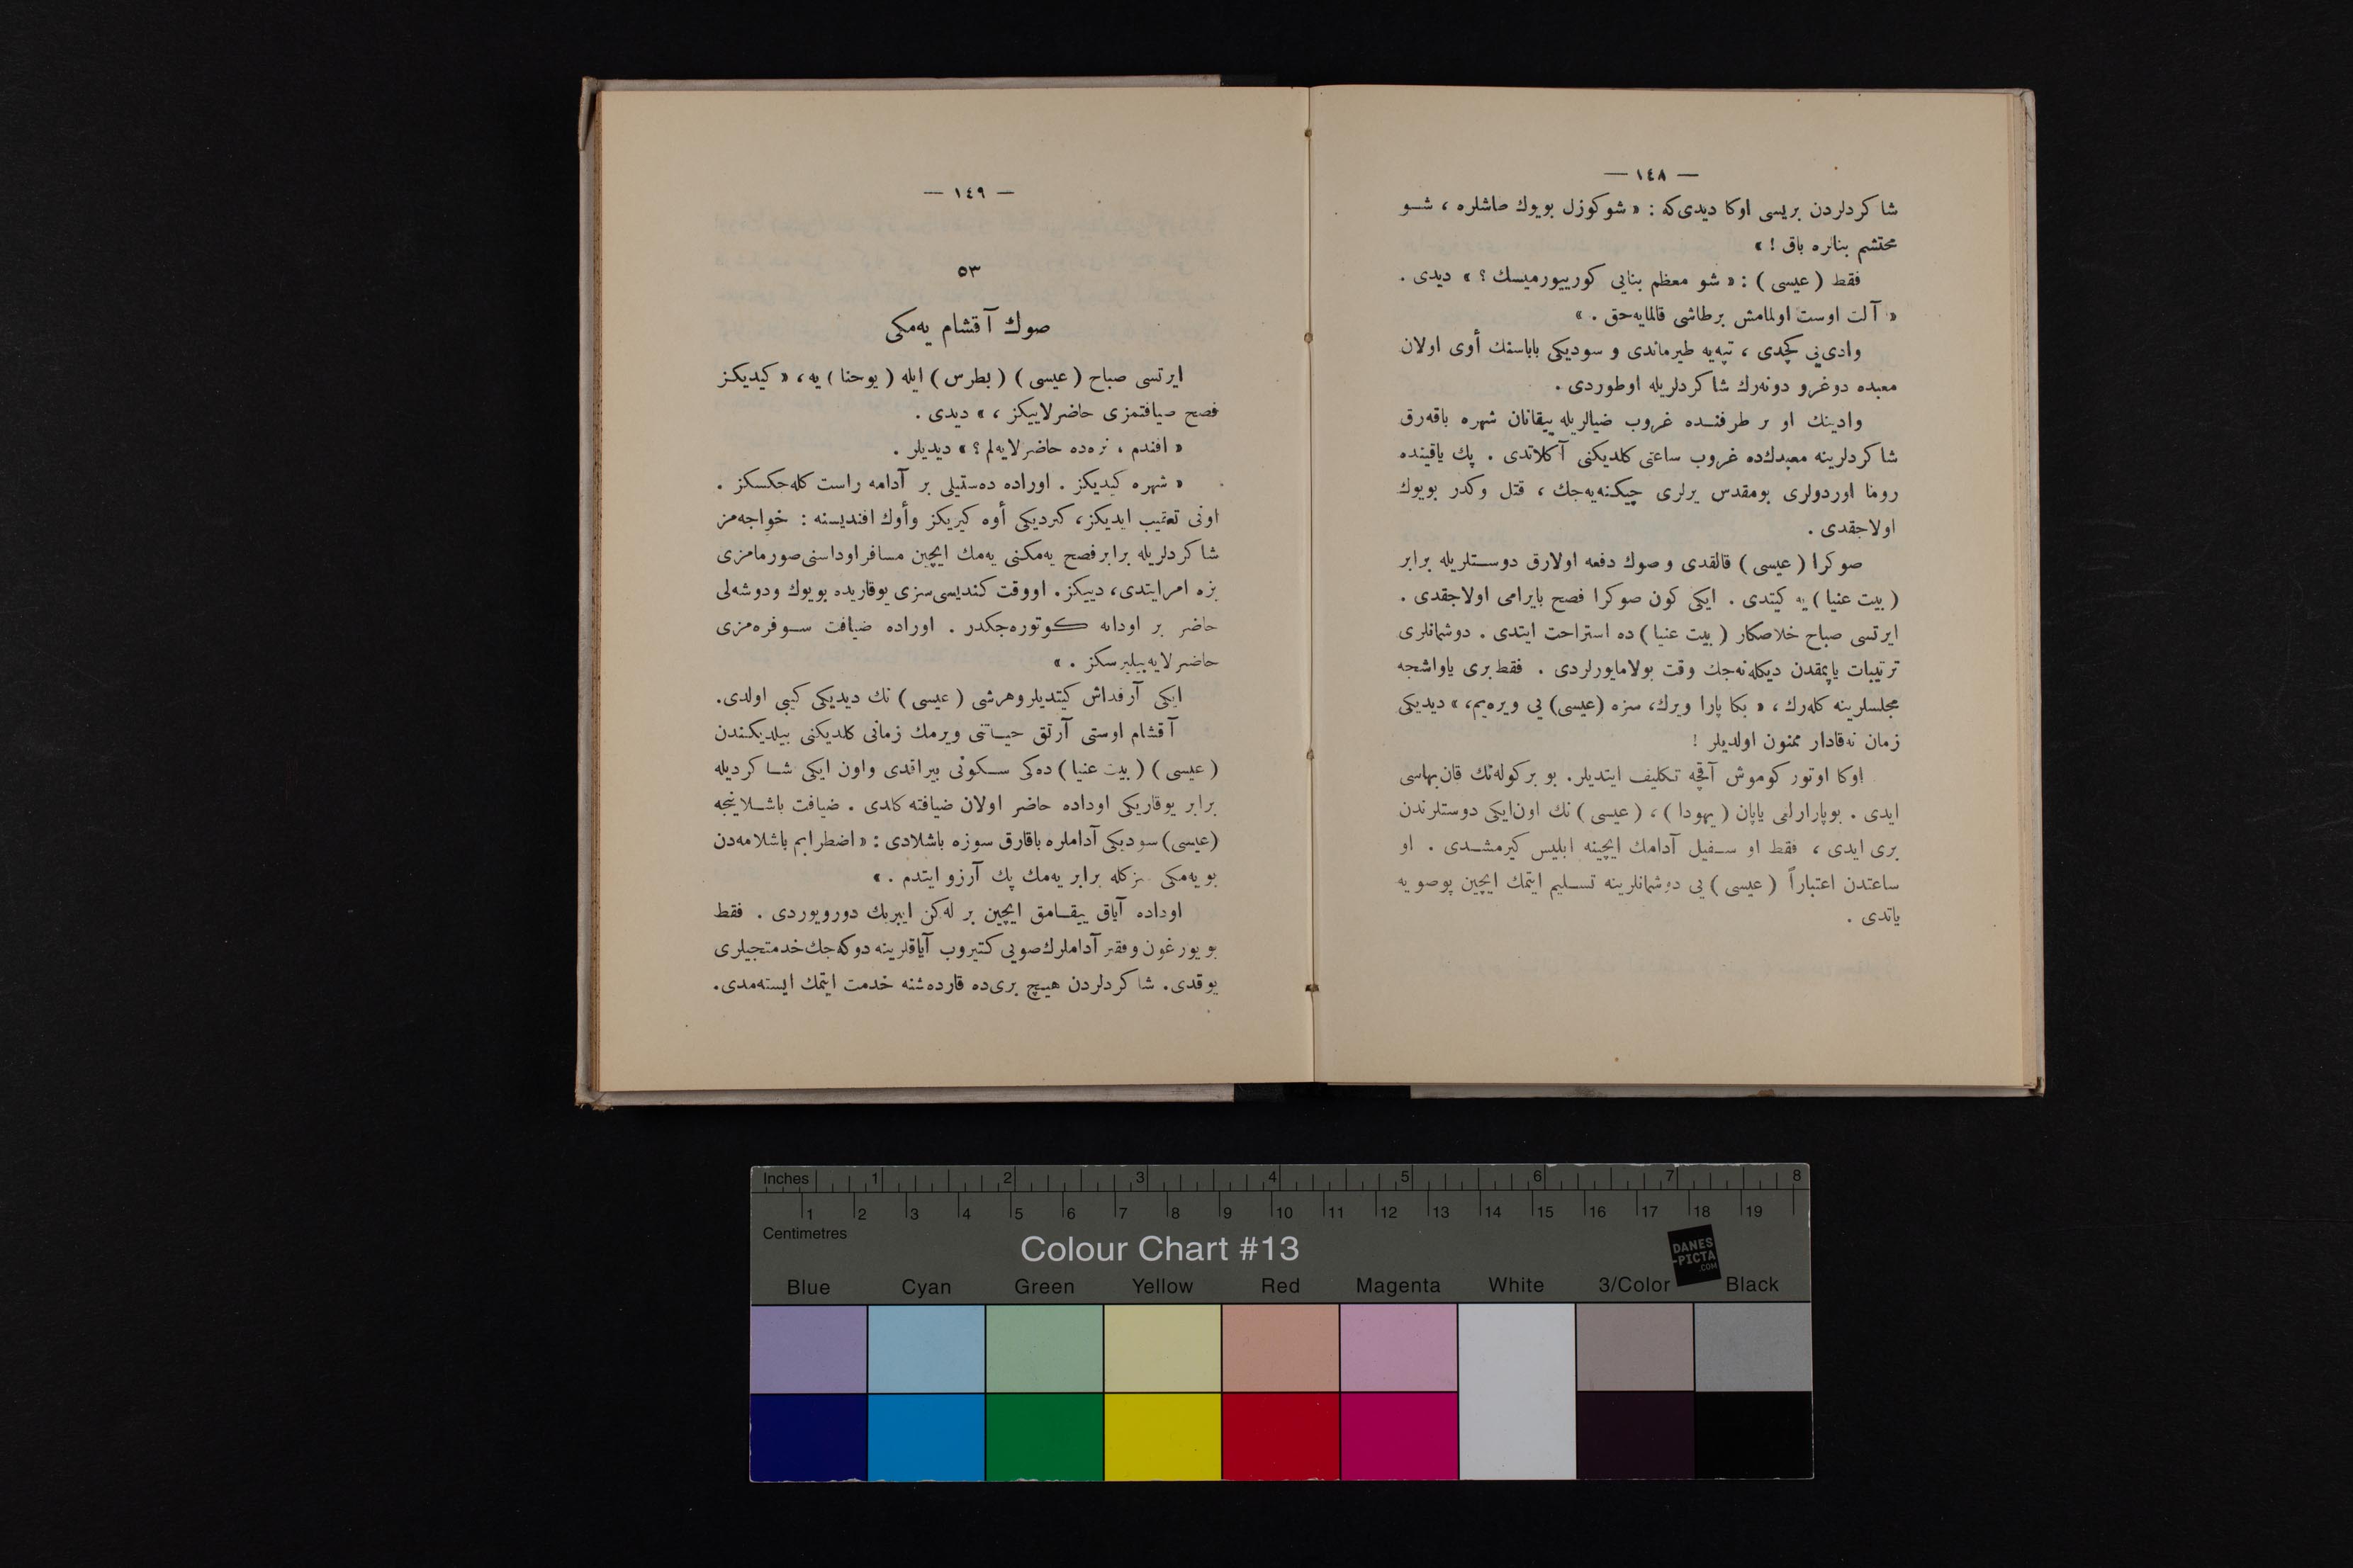 — ١٤٨ —
شاكردلردن بريسى اوكا ديدى‌كه : « شو كوزل بويوك طاشلره ، شــو
محتشم بنالره باق ! »
فقط ( عيسى ) : « شو معظم بنايى كورييورميسك ؟ » ديدى .
« آلت اوست اولمامش برطاشى قالمايه‌جق . »
وادى‌يى كچدى ، تپه‌يه طيرماندى و سوديكى باباسنك أوى اولان
معبده دوغرو دونه‌رك شاكردلريله اوطوردى .
وادينك او بر طرفنــده غروب ضيالريله ييقانان شهره باقه‌رق
شاكردلرينه معبدك‌ده غروب ساعتى كلديكنى آكلاتدى . پك ياقينده
روما اوردولرى بومقدس يرلرى چيكنه‌يه‌جك ، قتل وكدر بويوك
اولاجقدى .
صوكرا ( عيسى ) قالقدى و صوك دفعه اولارق دوســتلريله برابر
( بيت عنيا ) يه كيتدى . ايكى كون صوكرا فصح بايرامى اولاجقدى .
ايرتسى صباح خلاصكار ( بيت عنيا ) ده استراحت ايتدى . دوشمانلرى
ترتيبات ياپمقدن ديكله‌نه‌جك وقت بولامايورلردى . فقط برى ياواشجه
مجلسلرينه كله‌رك ، « بكا پارا ويرك، سزه (عيسى) يى ويره‌يم، » ديديكى
زمان نه‌قادار ممنون اولديلر !
اوكا اوتوز كوموش آقچه تكليف ايتديلر. بو بركوله‌نك قان‌بهاسى
ايدى . بوپازارلغى ياپان ( يهودا ) ، ( عيسى ) نك اون‌ايكى دوستلرندن
برى ايدى ، فقط او ســفيل آدامك ايچينه ابليس كيرمشــدى . او
ساعتدن اعتباراً ( عيسى ) يى دوشمانلرينه تســليم ايتمك ايچين پوصو يه
ياتدى .
— ١٤٩ —
٥٣
صوك آقشام يه‌مكى
ايرتسى صباح ( عيسى ) ( بطرس ) ايله ( يوحنا ) يه ، « كيديكـز
فصح ضيافتمزى حاضرلاييكز ، » ديدى .
« افندم ، نره‌ده حاضرلايه‌لم ؟ » ديديلر .
« شهره كيديكز . اوراده ده‌ستيلى بر آدامه راست كله‌جكسكز .
اونى تعقيب ايديكز، كيرديكى أوه كيريكز وأوك افنديسنه : خواجه‌مز
شاكردلريله برابر فصح يه‌مكنى يه‌مك ايچين مسافر اوداسنى صورمامزى
بزه امرايتدى، دييكز . اووقت كنديسى سزى يوقاريده بويوك ودوشه‌لى
حاضر بر اودايه كــوتوره‌جكدر . اوراده ضيافت ســوفره‌مزى
حاضرلايه‌بيليرسكز . »
ايكى آرقداش كيتديلر وهرشى ( عيسى ) نك ديديكى كيبى اولدى.
آقشام اوستى آرتق حيــاتنى ويرمك زمانى كلديكنى بيلديكندن
( عيسى ) ( بيت عنيا ) ده‌كى ســكونى بيراقدى واون ايكى شــاكرديله
برابر يوقاريكى اوداده حاضر اولان ضيافته كلدى . ضيافت باشــلاينجه
(عيسى) سوديكى آداملره باقارق سوزه باشلادى : « اضطرابم باشلامه‌دن
بو يه‌مكى سزكله برابر يه‌مك پك آرزو ايتدم . »
اوداده آياق ييقــامق ايچين بر له‌كن ايبريك دورويوردى . فقط
بو يورغون وفقير آداملرك صويى كتيروب آياقلرينه دوكه‌جك خدمتجيلرى
يوقدى. شاكردلردن هيــچ برى‌ده قارده‌شنه خدمت ايتمك ايسته‌مدى.
Inches 1 2 3 4 5 6 7 8
1 2 3 4 5 6 7 8 9 10 11 12 13 14 15 16 17 18 19
Centimetres
Colour Chart #13
DANES
-PICTA
.COM
Blue Cyan Green Yellow Red Magenta White 3/Color Black